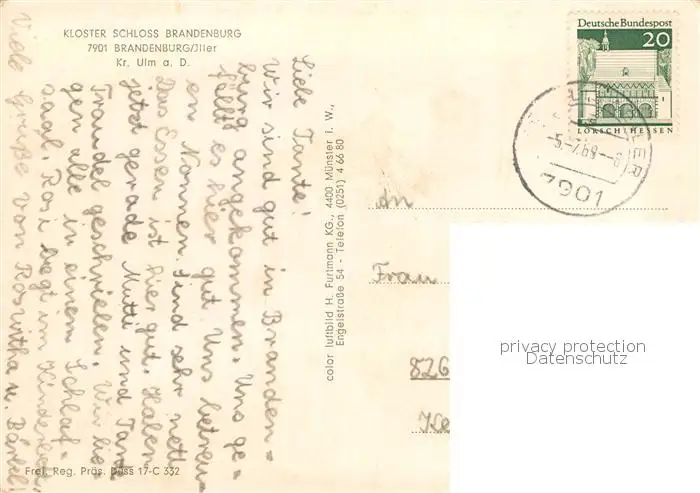 KLOSTER SCHLOSS BRANDENBURG
7901 BRANDENBURG/Jller
Kr. Ulm a. D.
Liebe Tante!
Wir sind gut in Branden=
burg angekommen. Uns ge=
fällt es hier gut. Uns betreu=
en Nonnen. Sind sehr nett.
Das Essen ist hier gut. Haben
jetzt gerade Mutti und Tante
Traudel geschrieben. Wir lie=
gen alle in einem Schlaf=
saal. Rosi liegt im Kinderbett.
Viele Grüße von Roswitha u. Bärbel!
Frei. Reg. Präs. Düss 17-C 332
color luftbild H. Furtmann KG., 4400 Münster i. W.,
Engelstraße 54 - Telefon (0251) 4 66 80
Deutsche Bundespost
20
LORSCH/HESSEN
-5.-7.69--8
7901
An
Frau
826
privacy protection
Datenschutz